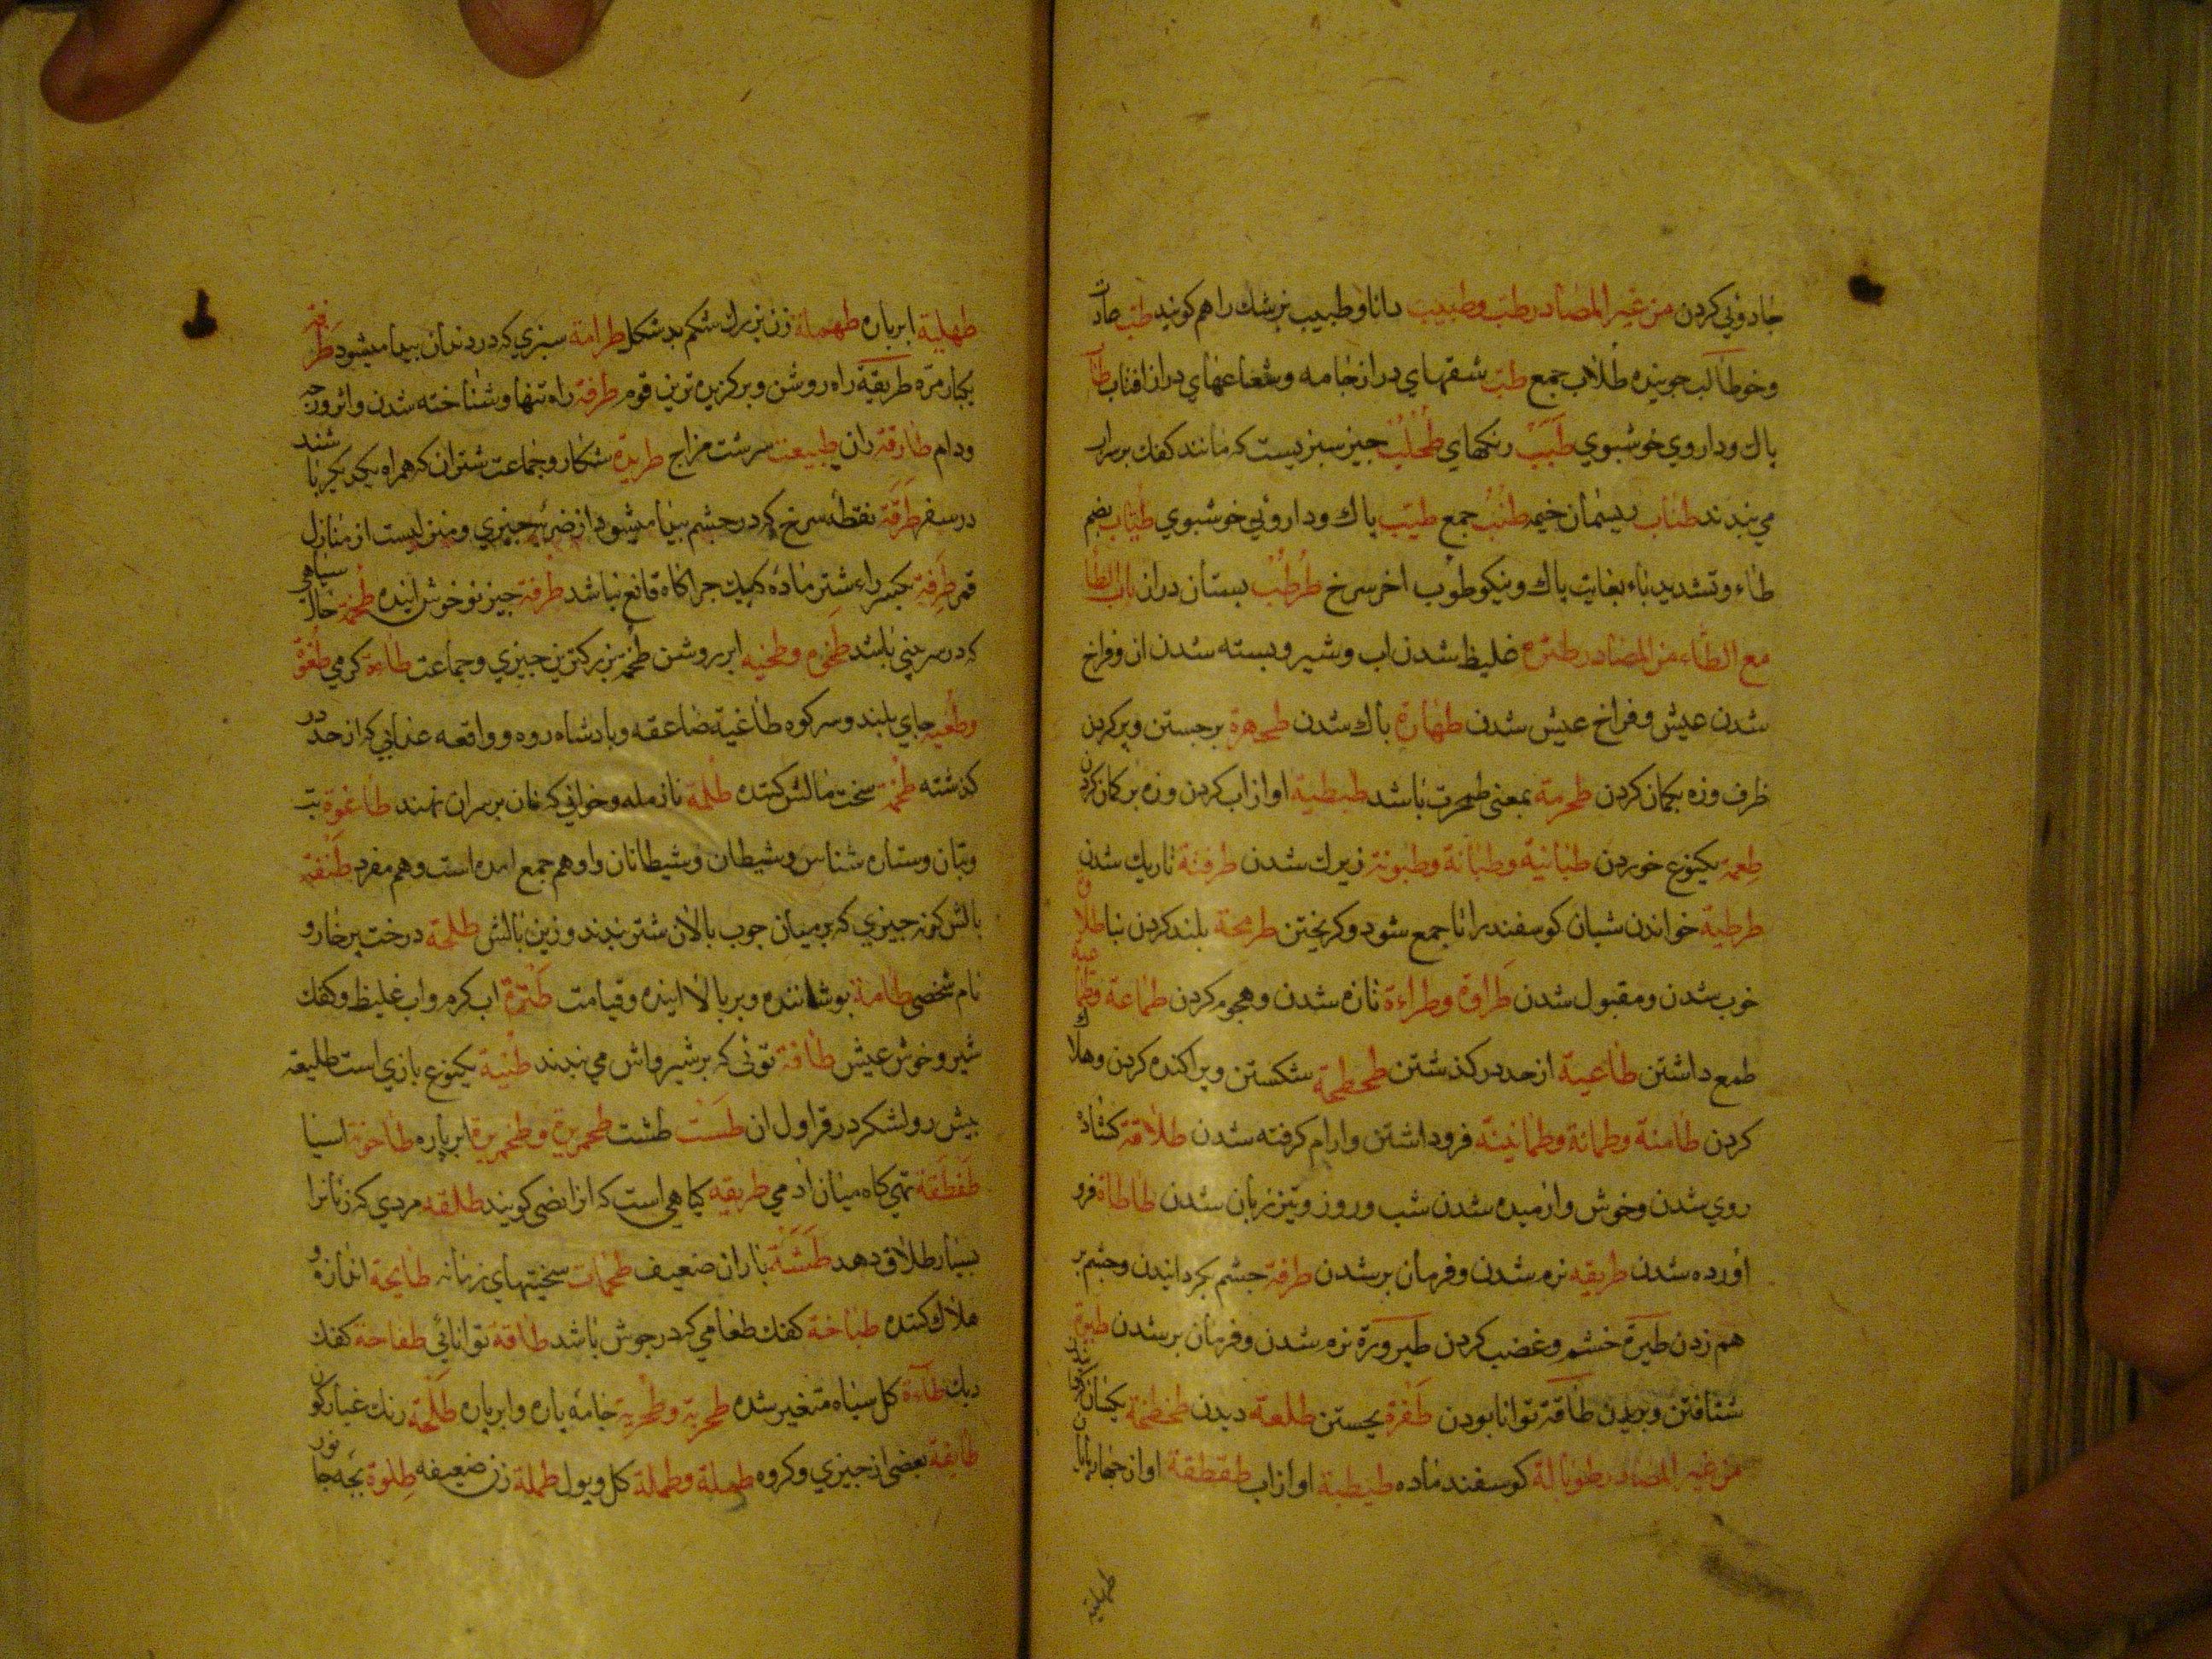 جادوئی کردن من غیر المصادر طب و طبیب دانا و طبیب بزشك را هم کویند طب عادت
وخو طالب جوینده طلاب جمع طبب شقهای دراز جامه و شعاعهای دراز افتاب
باك و داروی خوشبوی طبب رنکهای طحلب جیز سبزیست که مانند کفك برسراب
می بندند طناب ریسمان خیمه طنب جمع طیب باك و داروئی خوشبوی طیاب بضم
طاء و تشدید یاء بغایت باك و نیکو طوب اخر سرخ طرطب بستان دراز باب الطا
مع الطاء من المصادر طثرة غلیظ شدن اب و شیر و بسته شدن ان و فراخ
شدن عیش و فراخ عیش شدن طهارة باك شدن برجستن و بر کردن
ظرف وزه بکمان کردن طحرمة بمعنی باشد طبطبة اواز اب کردن وزه بر کمان کردن
طعمة یکنوع خوردن طبانیة و طبانة و طبونة زیرك شدن تاریك شدن
طرطبة خواندن شبان کوسفند را تا جمع شود و کریختن طرمحة بلند کردن بنا
خوب شدن و مقبول شدن طراوة و طراءة تازه شدن و هجوم کردن طماعة
طمع داشتن طاغیة از حد در کذشتن طحطحة شکستن و براکنده کردن و هلاك
کردن طامنة و طمانة و طمانینة فرو داشتن و ارام کرفته شدن طلاقة کشاده
روی شدن و خوش و ارمیده شدن شب و روز و تیز زبان شدن طاطاة فرو
اورده شدن نره شدن و فرمان بر شدن طرفة جشم بکردانیدن و جشم بر
هم زدن طیرة خشم و غضب کردن طیرورة نره شدن و فرمان بر شدن طیرة
شتافتن و بریدن طاقة توانا بودن طفرة بجستن طلعة دیدن
من غیر المصادر طوبالة کوسفند ماده طبطبة اواز اب طقطقة اواز
طهلیة
طهلیة ابر باره طهملة زن بزرك شکم بد شکل طرامة سبزی که در دندان بیدا میشود طرقة
یکبار مره طریقة راه روشن و برکزیده ترین قوم طرقة راه تنها و شناخته شدن و اثر
و دام طارقة ران طبیعت سرشت مزاج طریدة شکار و جماعت شتران که همراه یکدیکر باشند
در سفر طرفة نقطه سرخ که در جشم بیدا میشود از ضربه جیزی و منزلیست از منازل
قمر طرفة بکسر راء شتر ماده که بیك جراکاه قانع نباشد طرفة جیز نو خوش اینده طخمة سیاهی
که در سر بینی باشد ابر روشن طحمة بزرکترین جیزی و جماعت کرمی طغوة
جای بلند و سر کوه طاغیة صاعقه و بادشاه روه و واقعه عذابی که از حد در
کذشته سخت مالش کننده طلمة نان مله و خوانی که نان بر سر ان نهند طاغوة بت
و بتان و ستاره شناس و شیطان و شیطانان و او هم جمع امده است و هم مفرد طنفة
بالش کونه جیزی که بر میان جوب بالان شتر بندند و زین بالش طلحة درخت بر خار و
نام شخصی طامة بوشاننده و بر بالا اینده و قیامت طثرة اب کرم و اب غلیظ و کفك
شیر و خوش عیش توئی که بر شیر و ماش می بندند طبنة یکنوع بازی است طلیعة
بیش رو لشکر در قراول ان طست طشت ابر باره طاحونة اسیا
طفطفة تهی کاه میان ادمی طریقة کیاهی است که انرا نصی کویند طلقة مردی که زنانرا
بسیار طلاق دهد طششة باران ضعیف سختیهای زمانه طایحة اندازه و
هلاك کننده طباخة کفك طعامی که در جوش باشد طاقة توانائی طفاحة کفك
دیك طاءة کل سیاه متغیر شده طحربة و طحربة جامه باره و ابر باره طلحة رنك غبارکون
طایفة بعضی از جیزی و کروه طملة و طملة کل و بول طملة زن ضعیفه طلوة بجه